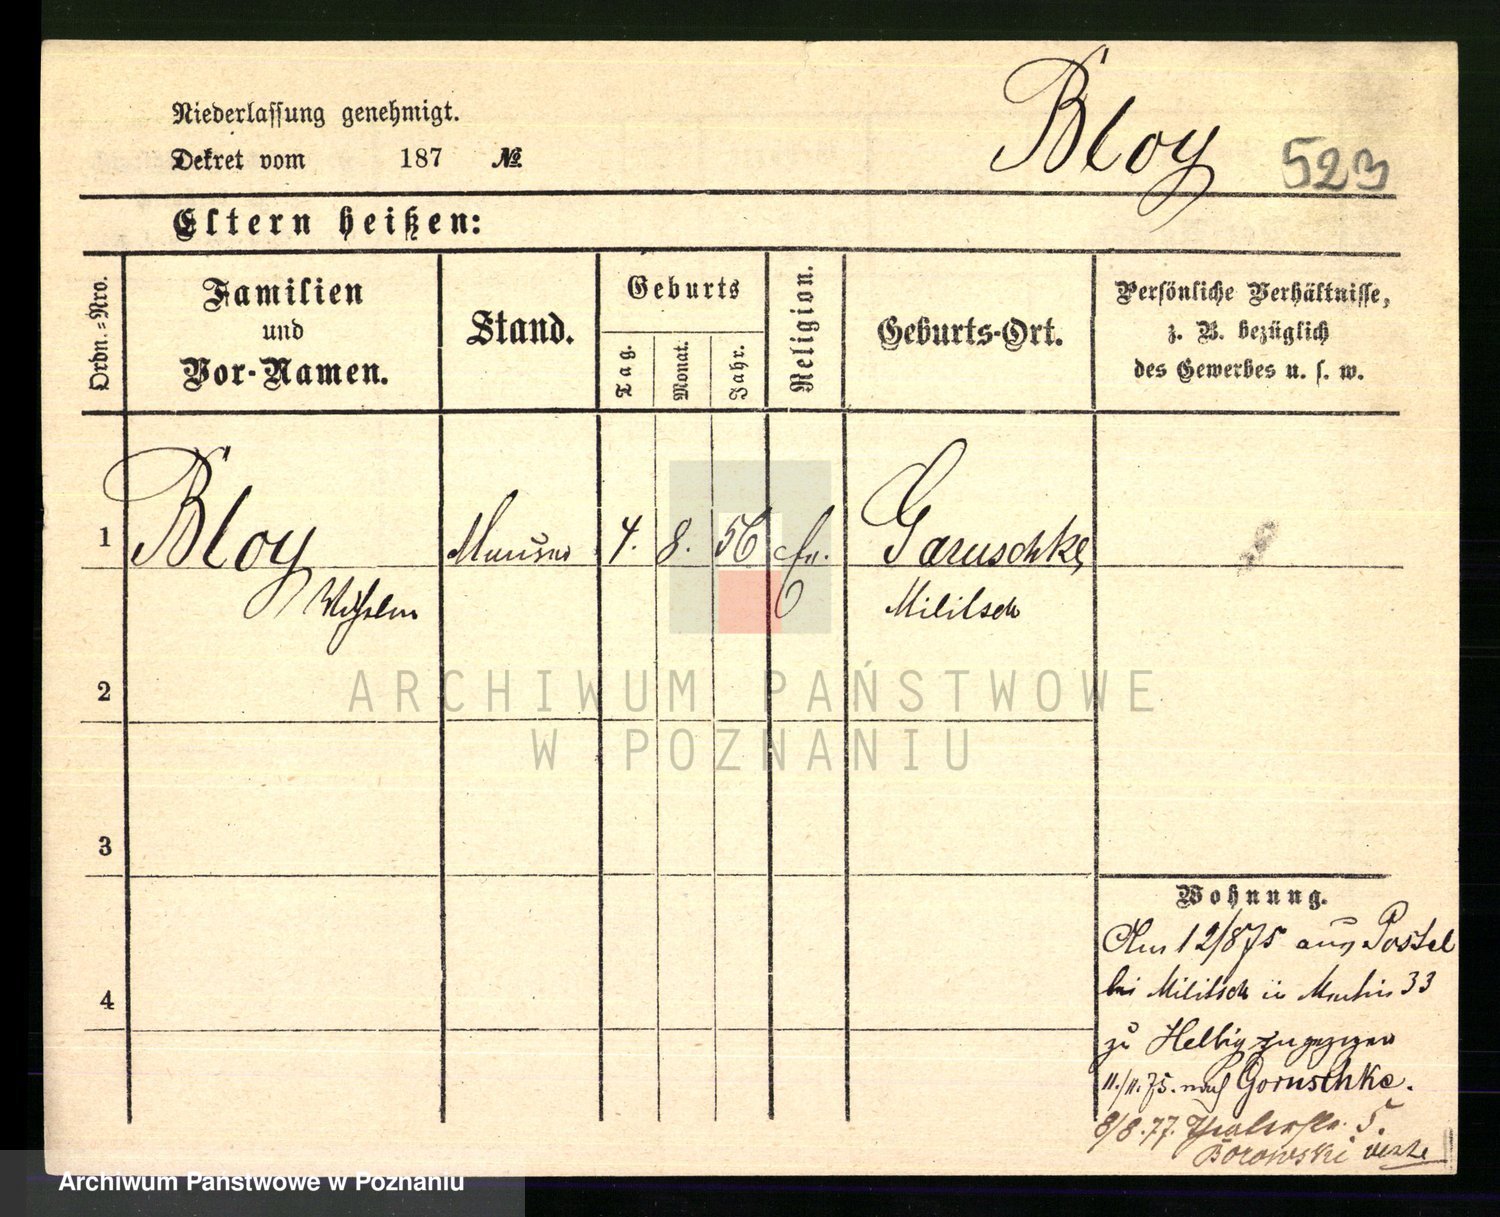 Niederlassung genehmigt.
Dekret vom 187 №
Bloy
523
Eltern heißen:
Ordn.=Nro.
Familien
und
Vor-Namen.
Stand.
Geburts
Tag.
Monat.
Jahr.
Religion.
Geburts-Ort.
Persönliche Verhältnisse,
z. B. bezüglich
des Gewerbes u. s. w.
1 Bloy 4. 8. 56 Goruschke
Wilhelm Militsch
2
3
4
Wohnung.
Am 12/8 75 aus Postel
bei Militsch in Martin 33
zu Helbig zugezogen
11./11.75. nach Goruschke.
8/8.77. 5.
Borowski
ARCHIWUM PAŃSTWOWE
W POZNANIU
Archiwum Państwowe w Poznaniu